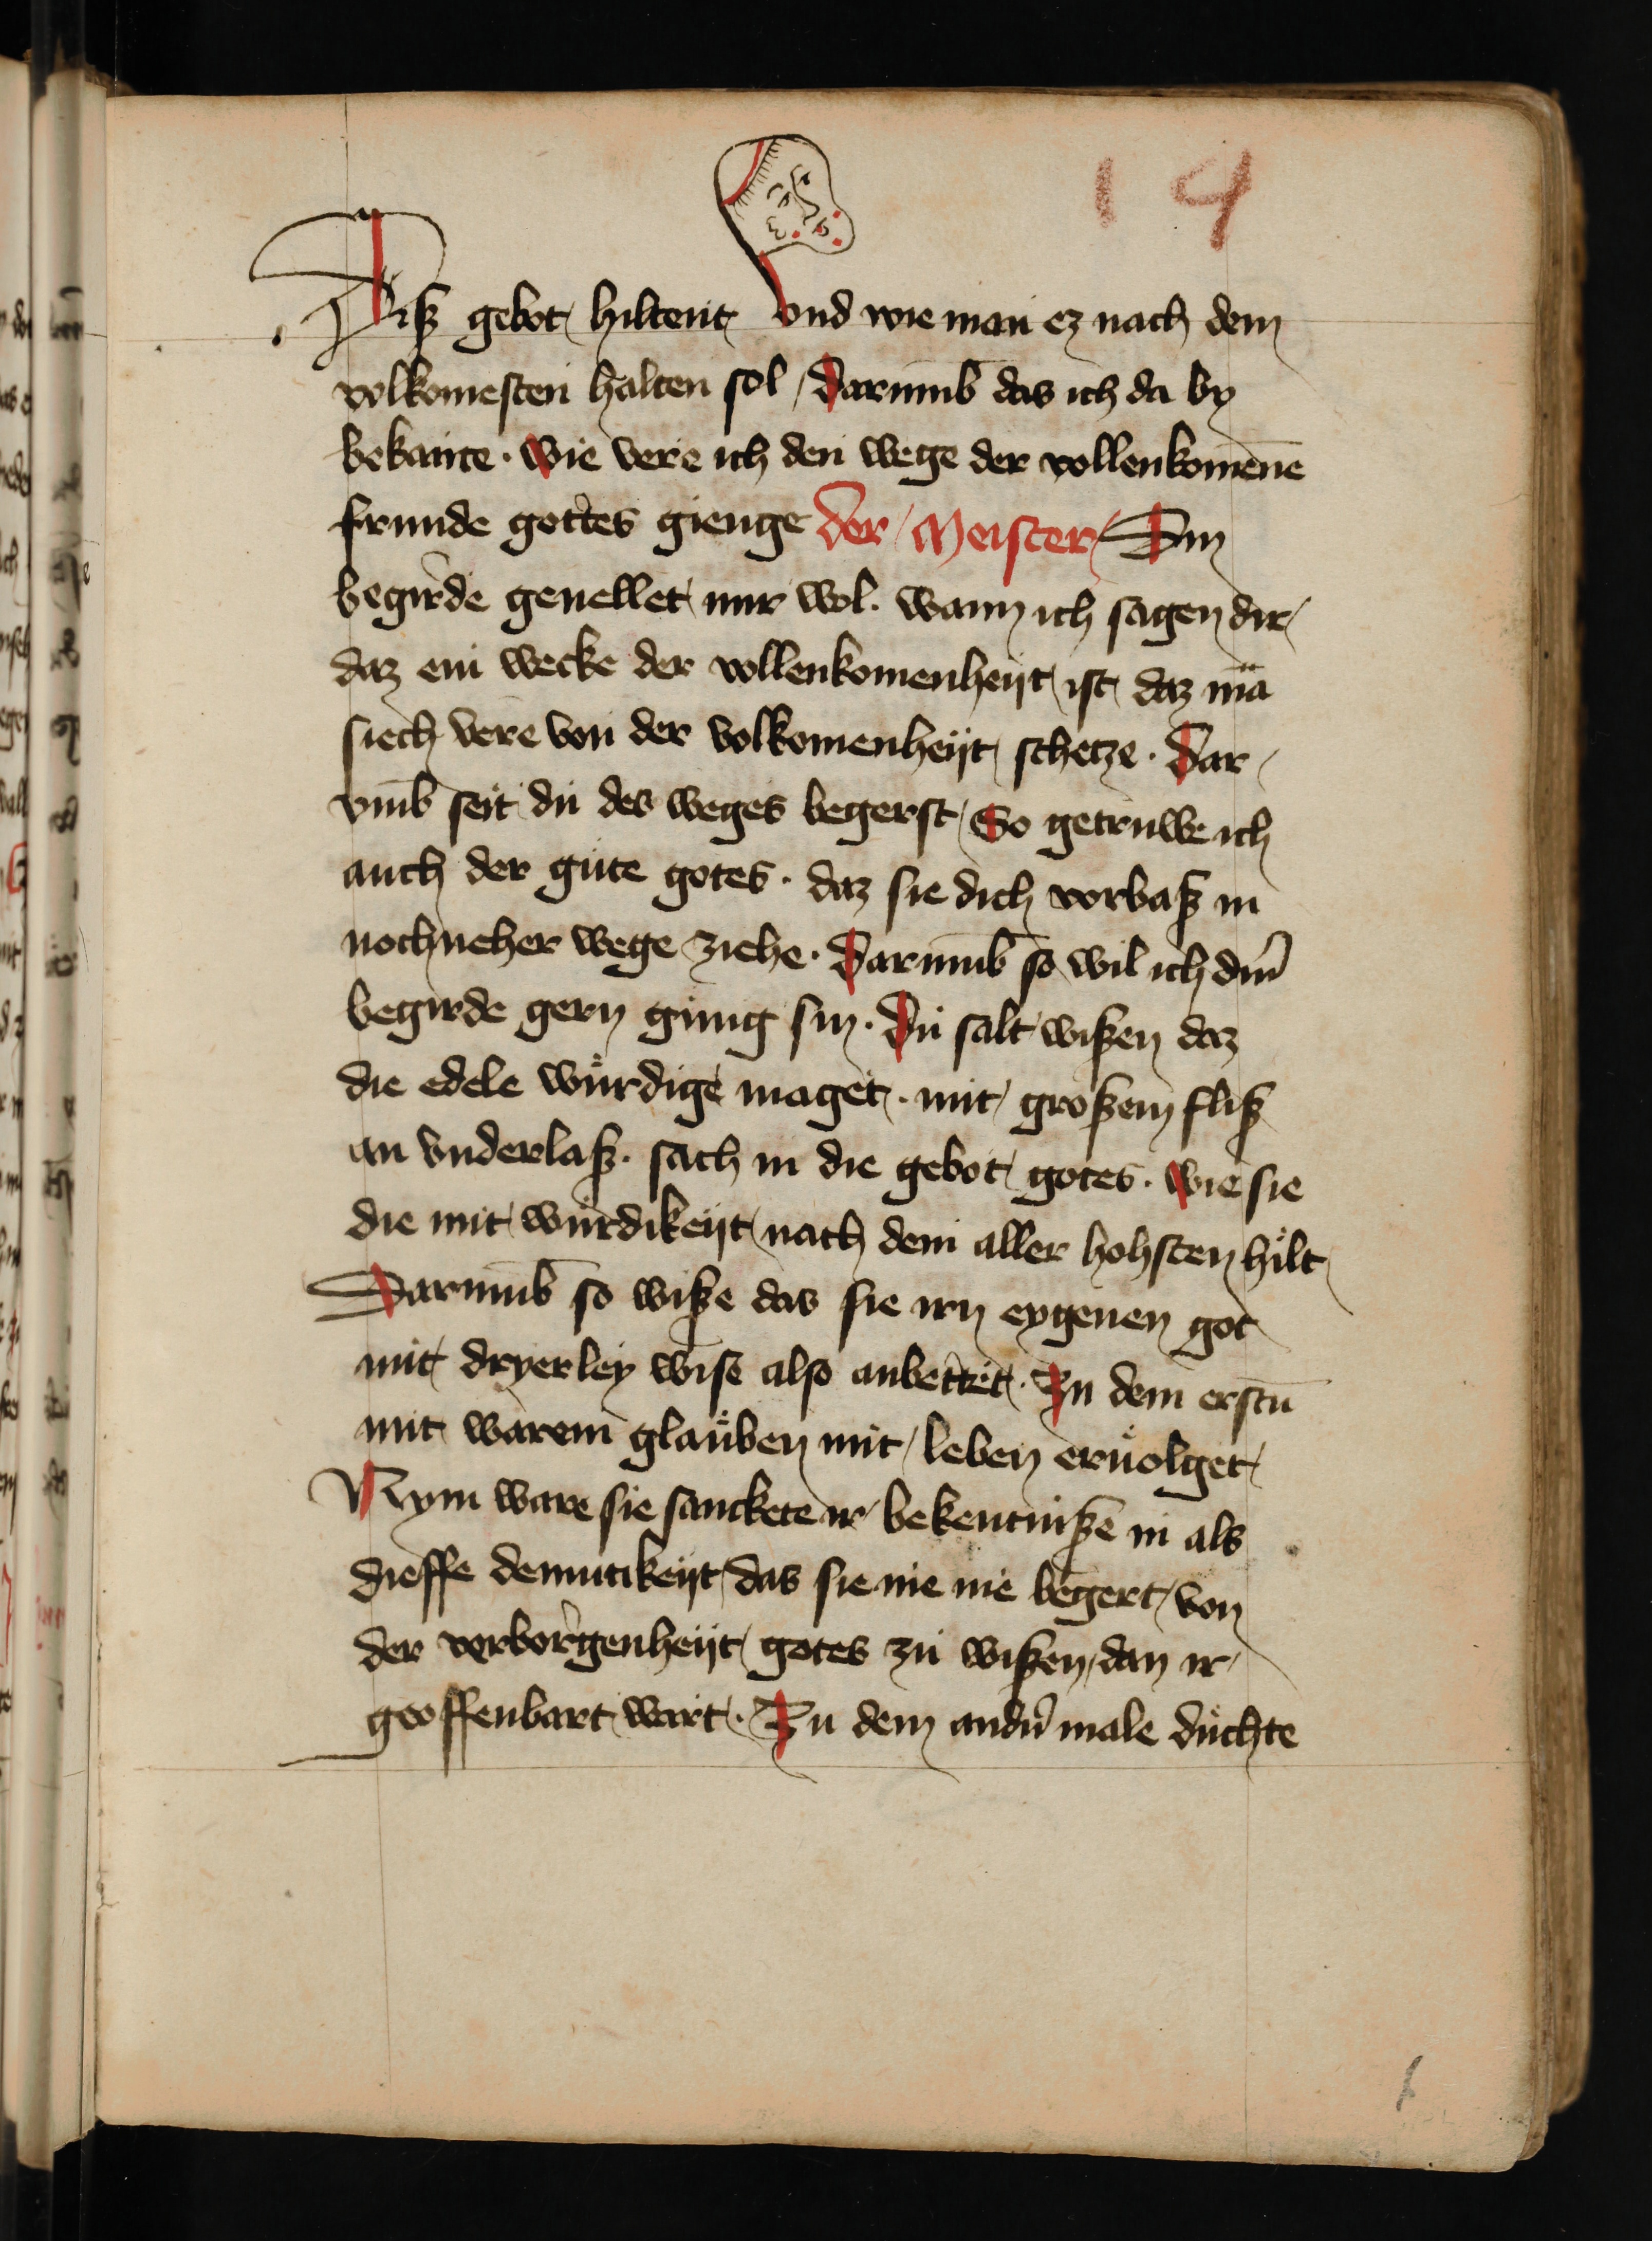 14
Diß gebot hiltent vnd wie man ez nach dem
volkomesten halten sol / Darumb das ich da by
bekante · Wie vere ich den wege der vollenkomēne
frunde gottes gienge der Meister Din
begirde geuellet mir wol · wann ich sagen dir
daz ein wecke der vollenkomenheyt ist daz mā
siech vere von der volkomenheyt schetze · Dar
vmb seit du des weges begerst So getruwe ich
auch der gute gotes · daz sie dich vorbaß in
noch neher wege ziehe · Darumb so wil ich din̄
begirde gern gnug sin · Du salt wißen daz
die edele wurdige maget · mit großem fliß
an vnderlaß · sach in die gebot gotes · Wie sie
die mit wurdikeyt nach dem aller hohsten hilt
Darumb so wiße das sie irn eygenen got
mit dryerley wise also anbettet · Zu dem erstū
mit warem glauben mit leben eruolget
Nym ware sie sanckete ir bekentniße in als
dieffe demutikeyt das sie nie nie begert von
der verborgenheyt gotes zu wißen dan ir
geoffenbart wart · Zu dem andn̄ male duchte